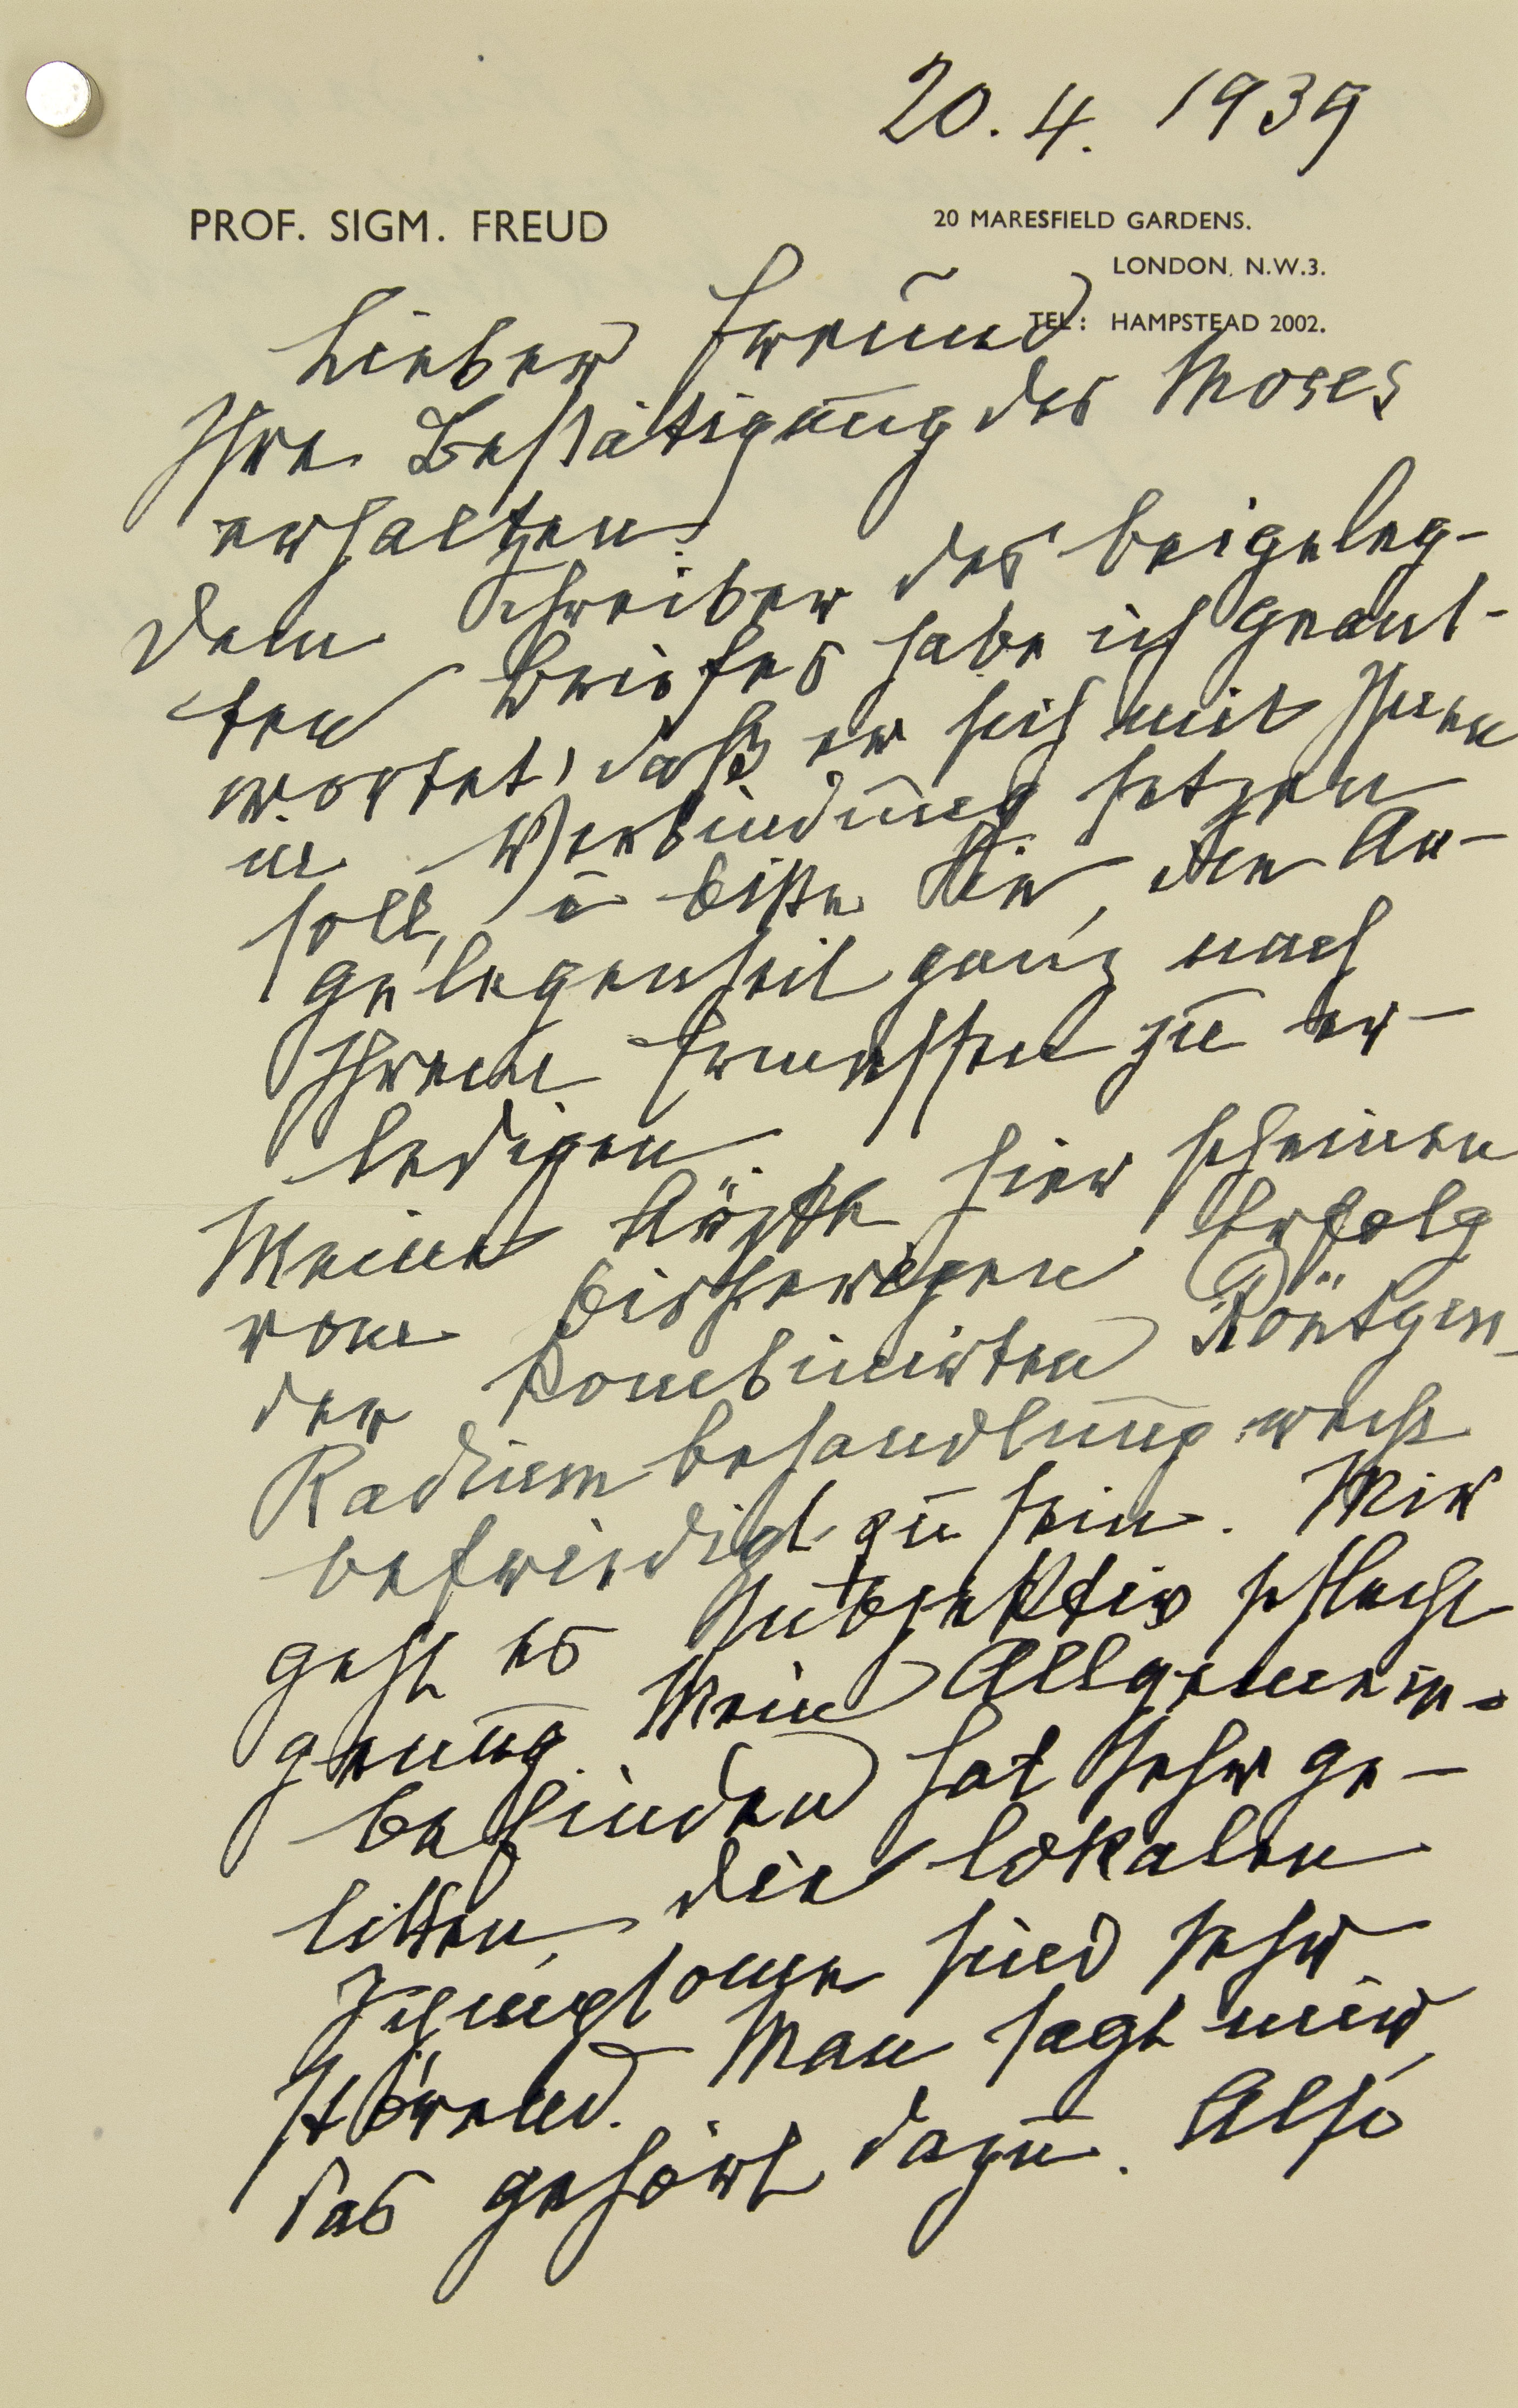 20. 4. 1939
PROF. SIGM. FREUD
20 MARESFIELD GARDENS.
LONDON. N.W.3.
TEL: HAMPSTEAD 2002.
Lieber Freund
Ihre Bestätigung des Moses
erhalten.
Dem Schreiber des beigeleg-
ten Briefes habe ich geant-
wortet, daß er sich mit Ihnen
in Verbindung setzen
soll, u bitte Sie, die An-
gelegenheit ganz nach
Ihrem Ermessen zu er-
ledigen
Meine Ärzte hier scheinen
vom bisherigen Erfolg
der kombinirten Röntgen-
Radiumbehandlung recht
befriedigt zu sein. Mir
geht es subjektiv schlecht
genug. Mein Allgemein-
befinden hat sehr ge-
litten, die lokalen
Schmerzen sind sehr
störend. Man sagt mir
das gehört dazu. Also